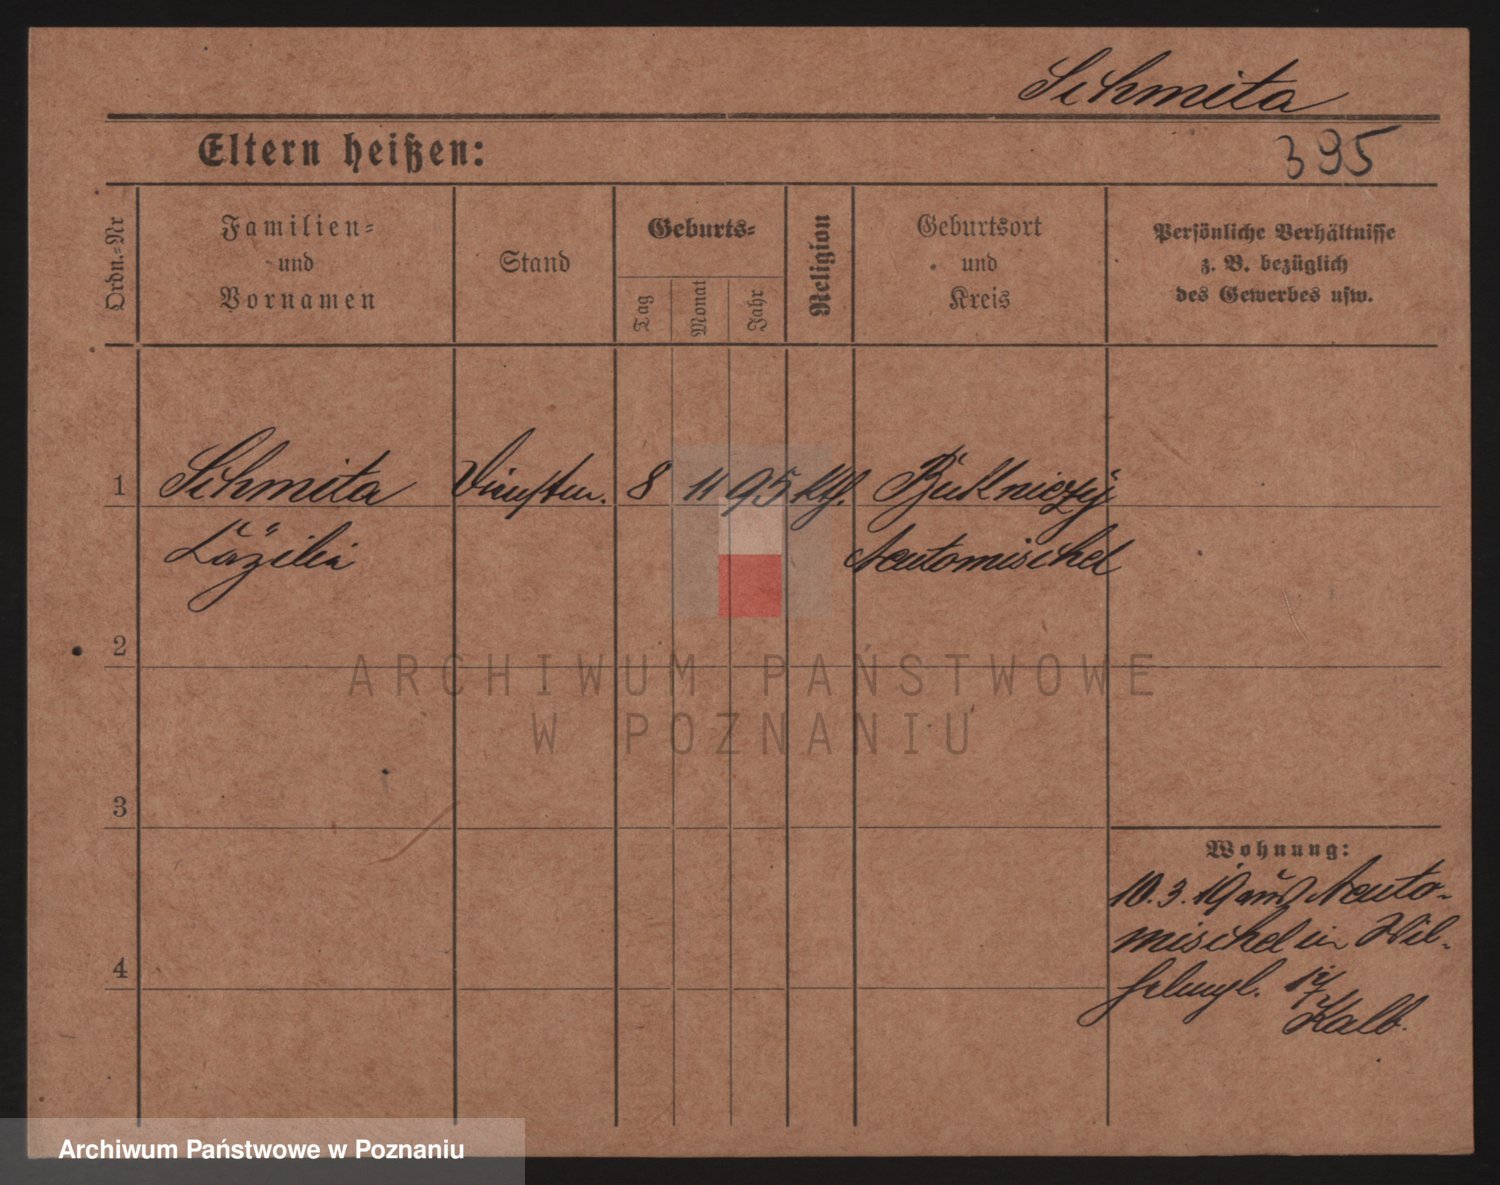 Schmita
Eltern heißen:
395
Ordn.=Nr
Familien=
und
Vornamen
Stand
Geburts=
Tag
Monat
Jahr
Religion
Geburtsort
und
Kreis
Persönliche Verhältnisse
z. B. bezüglich
des Gewerbes usw.
1
Schmita
8
11
95
kth.
Cäzilia
Neutomischel
2
ARCHIWUM PAŃSTWOWE
W POZNANIU
3
Wohnung:
10. 3. 19 aus Neuto-
mischel in Wil-
4
Kalb.
Archiwum Państwowe w Poznaniu